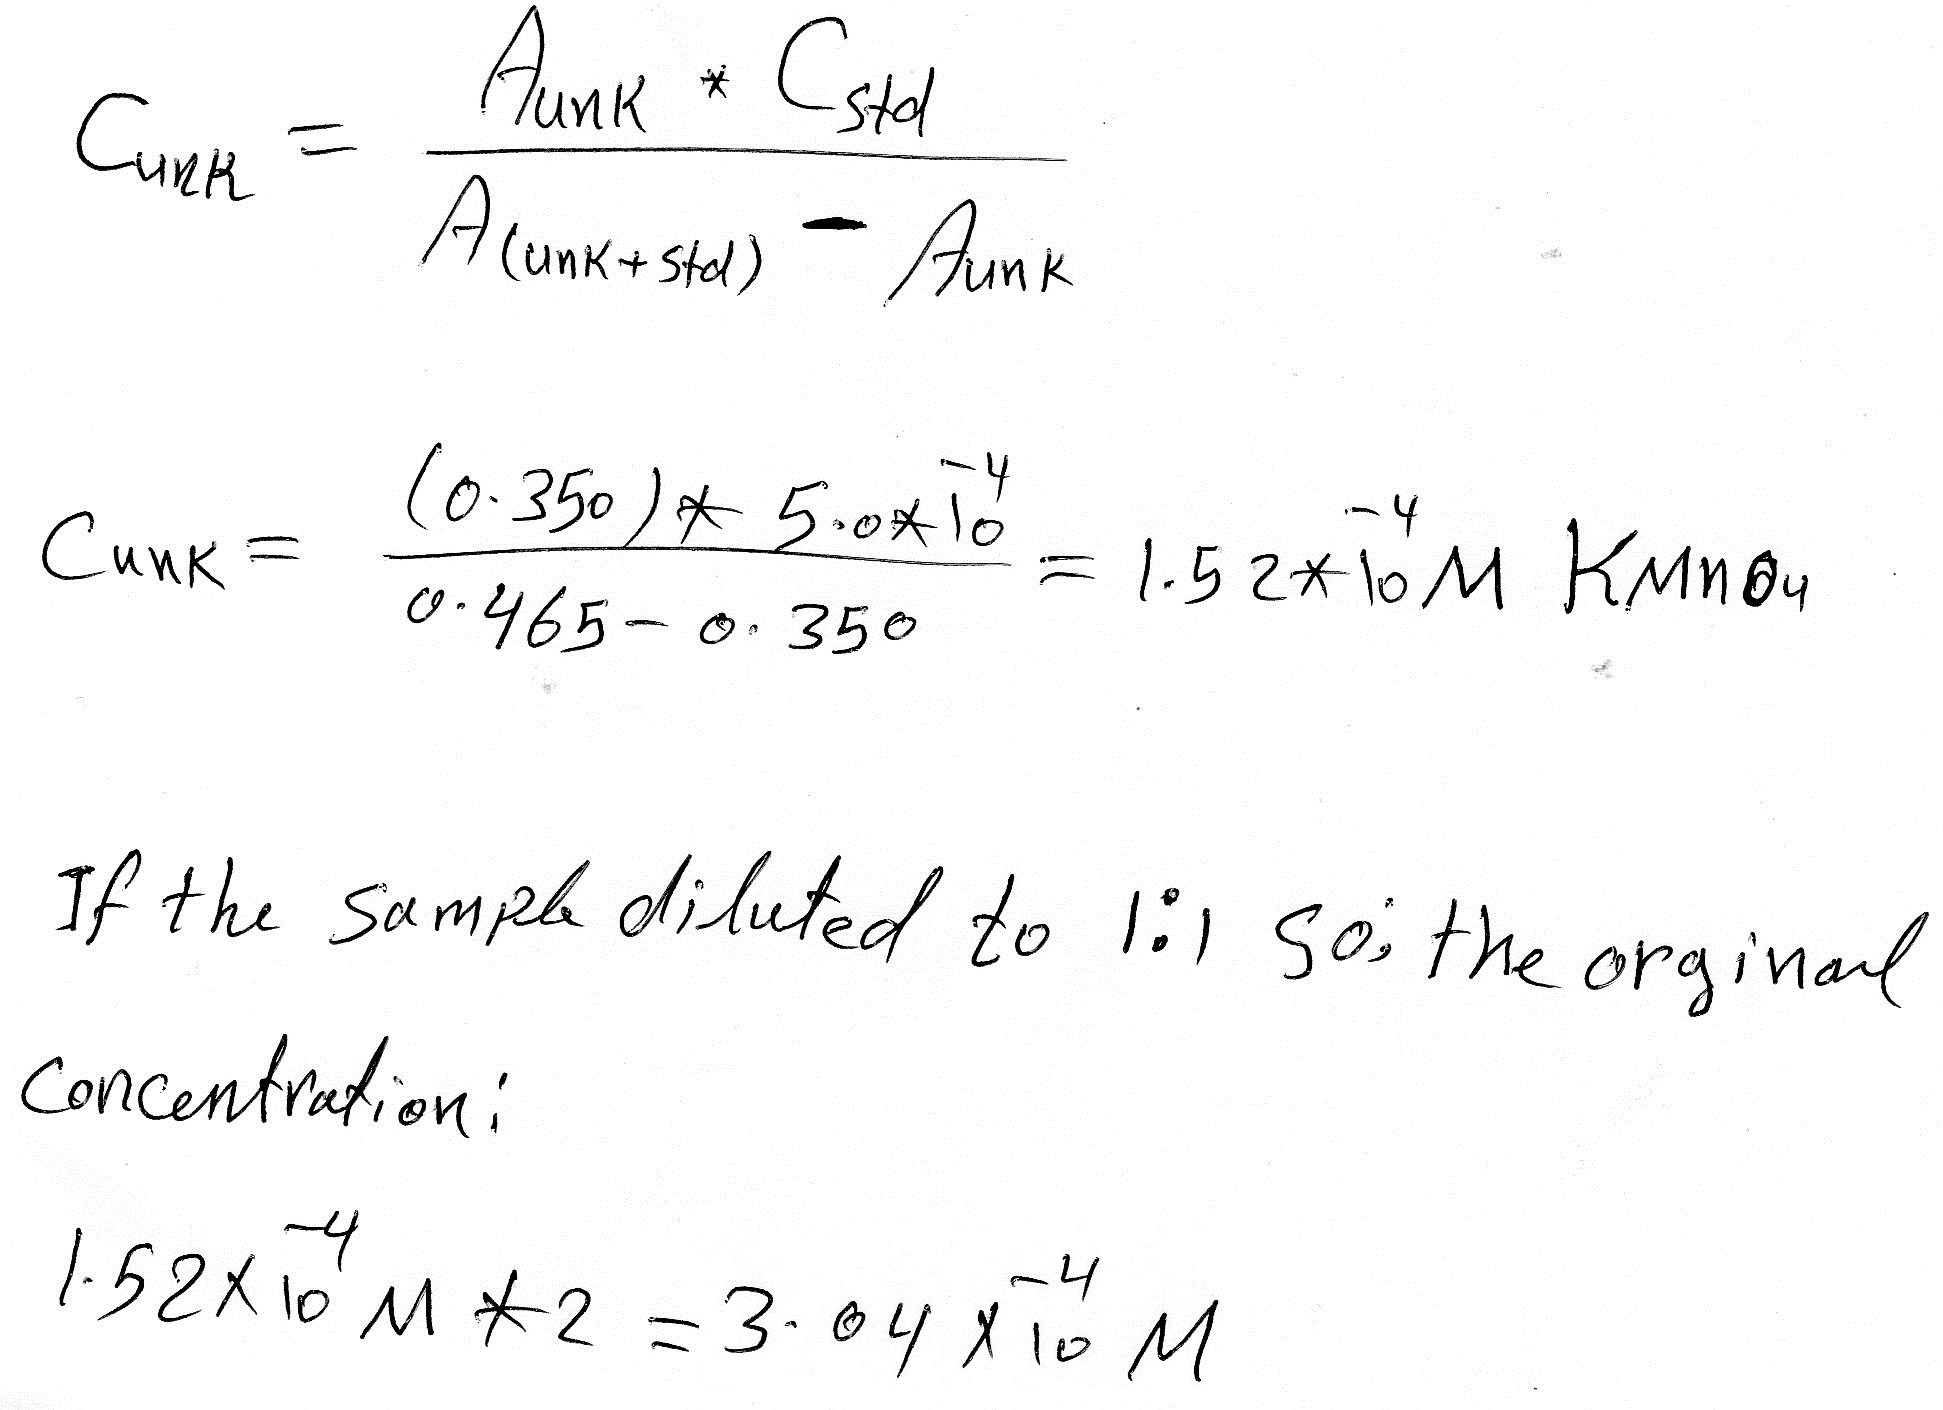 Cunk = Aunk * Cstd / A(unk+std) - Aunk
Cunk = (0.350) * 5.0*10^-4 / 0.465 - 0.350 = 1.52*10^-4 M KMnO4
If the sample diluted to 1:1 So; the orginal
concentration:
1.52x10^-4 M * 2 = 3.04 x10^-4 M